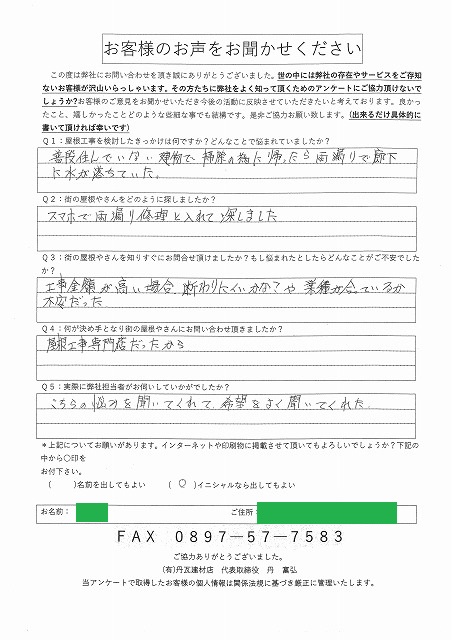 お客様のお声をお聞かせください
この度は弊社にお問い合わせを頂き誠にありがとうございました。世の中には弊社の存在やサービスをご存知
ないお客様が沢山いらっしゃいます。その方たちに弊社をよく知って頂くためのアンケートにご協力頂けないで
しょうか?お客様のご意見をお聞かせいただき今後の活動に反映させていただきたいと考えております。良かっ
たこと、嬉しかったことどのような些細な事でも結構です。是非ご協力お願い致します。(出来るだけ具体的に
書いて頂ければ幸いです)
Q1:屋根工事を検討したきっかけは何ですか?どんなことで悩まれていましたか?
普段住んでいない建物で、掃除の為に帰ったら雨漏りで廊下
に水が落ちていた。
Q2:街の屋根やさんをどのように探しましたか?
スマホで雨漏り修理と入れて探しました
Q3:街の屋根やさんを知りすぐにお問合せ頂けましたか?もし悩まれたとしたらどんなことがご不安でした
か?
工事金額が高い場合、断わりにくいかな?や業種が合っているか
不安だった
Q4:何が決め手となり街の屋根やさんにお問い合わせ頂きましたか?
屋根工事専門店だったから
Q5:実際に弊社担当者がお伺いしていかがでしたか?
こちらの悩みを聞いてくれて、希望をよく聞いてくれた.
*上記についてお願いがあります。インターネットや印刷物に掲載させて頂いてもよろしいでしょうか?下記の
中から〇印を
お付下さい。
( )名前を出してもよい ( ○ )イニシャルなら出してもよい
お名前: ご住所:
FAX 0897-57-7583
ご協力ありがとうございました。
(有)丹瓦建材店 代表取締役 丹 富弘
当アンケートで取得したお客様の個人情報は関係法規に基づき厳正に管理いたします。